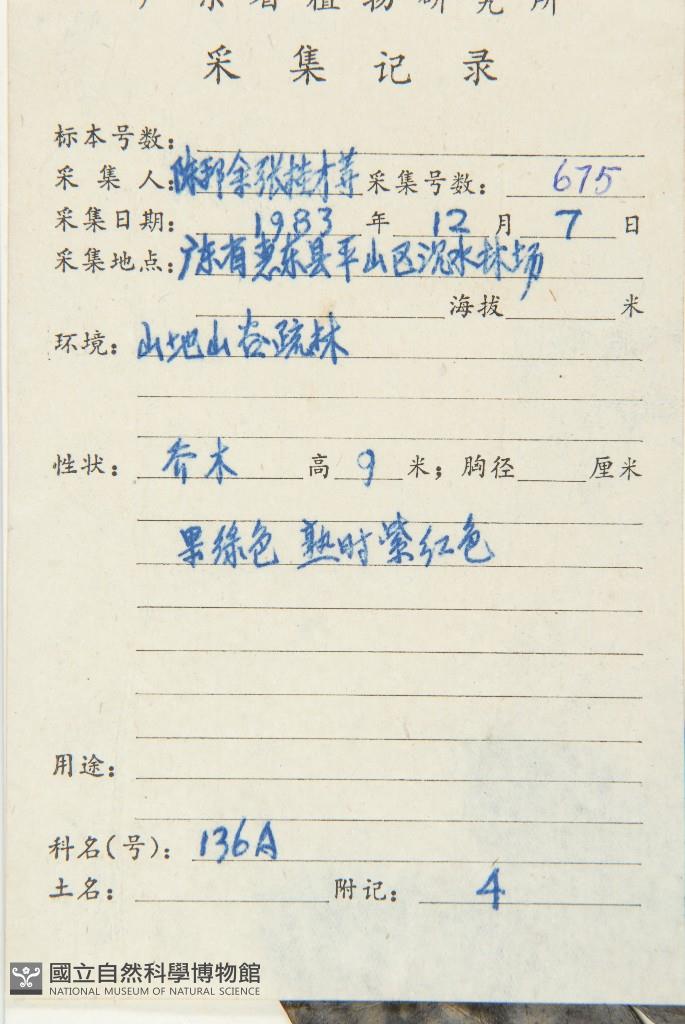 广东省植物研究所
采集记录
标本号数：
采集人：陈邦余张桂才等 采集号数：675
采集日期：1983年12月7日
采集地点：广东省惠东县平山区沉水林场
海拔 米
环境：山地山谷疏林
性状：乔木 高9米；胸径 厘米
果绿色 熟时紫红色
用途：
科名(号)：136A
土名： 附记：4
國立自然科學博物館
NATIONAL MUSEUM OF NATURAL SCIENCE